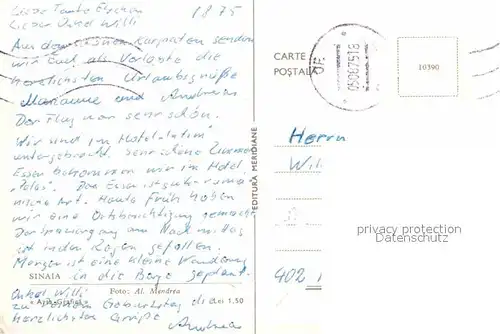 1875
Liebe Tante Elschen
Lieber Onkel Willi
Aus den schönen Karpaten senden
wir Euch als Verlobte die
herzlichsten Urlaubsgrüße
Marianne und Andreas
Der Flug war sehr schön.
Wir sind im Hotel
untergebracht. Sehr schöne Zimmer
Essen bekommen wir im Hotel
Das Essen ist gute rumä-
nische Art. Heute früh haben
wir eine Ortsbesichtigung gemacht
Der Spaziergang am Nachmittag
ist in den Regen gefallen.
Morgen ist eine kleine Wanderung
in die Berge geplant.
SINAIA
Foto: Al. Mendrea
Lei 1,50
Onkel Willi
zu Deinem Geburtstag die
herzlichsten Grüße
Andreas
EDITURA MERIDIANE
CARTE
POSTALĂ
10390
Herrn
Wil
402
privacy protection
Datenschutz